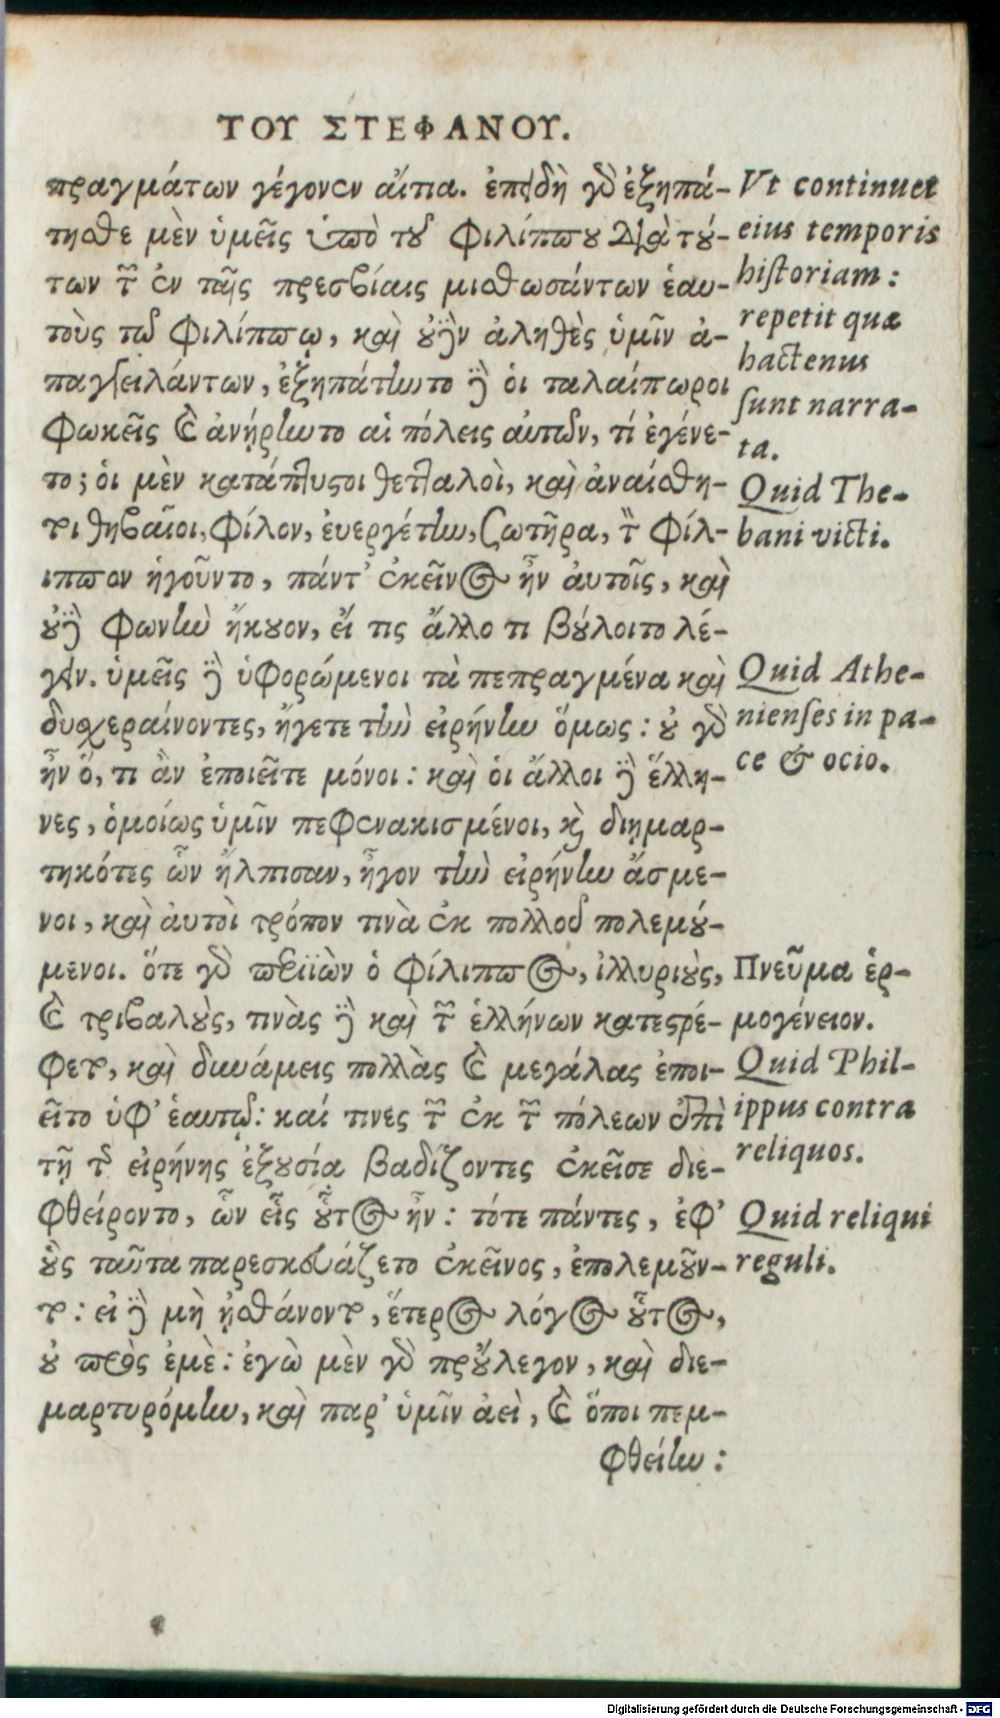 ΤΟΥ ΣΤΕΦΑΝΟΥ.
πραγμάτων γέγονεν αἴτια. ἐπειδὴ γὰρ ἐξηπά-
τησθε μὲν ὑμεῖς ὑπὸ τοῦ Φιλίππου διὰ τού-
των τῶν ἐν ταῖς πρεσβείαις μισθωσάντων ἑαυ-
τοὺς τῷ Φιλίππῳ, καὶ οὐδὲν ἀληθὲς ὑμῖν ἀ-
παγγειλάντων, ἐξηπάτηντο δὲ οἱ ταλαίπωροι
Φωκεῖς καὶ ἀνῄρηντο αἱ πόλεις αὐτῶν, τί ἐγένε-
το; οἱ μὲν κατάπτυστοι θετταλοὶ, καὶ ἀναίσθη-
τοι θηβαῖοι, φίλον, εὐεργέτην, σωτῆρα, τὸν Φίλ-
ιππον ἡγοῦντο, πάντ' ἐκεῖνος ἦν αὐτοῖς, καὶ
οὐδὲ φωνὴν ἤκουον, εἴ τις ἄλλο τι βούλοιτο λέ-
γειν. ὑμεῖς δὲ ὑφορώμενοι τὰ πεπραγμένα καὶ
δυσχεραίνοντες, ἤγετε τὴν εἰρήνην ὅμως: οὐ γὰρ
ἦν ὅ, τι ἂν ἐποιεῖτε μόνοι: καὶ οἱ ἄλλοι δὲ ἕλλη-
νες, ὁμοίως ὑμῖν πεφενακισμένοι, καὶ διημαρ-
τηκότες ὧν ἤλπισαν, ἦγον τὴν εἰρήνην ἄσμε-
νοι, καὶ αὐτοὶ τρόπον τινὰ ἐκ πολλοῦ πολεμού-
μενοι. ὅτε γὰρ περιϊὼν ὁ Φίλιππος, ἰλλυριοὺς,
καὶ τριβαλοὺς, τινὰς δὲ καὶ τῶν ἑλλήνων κατεστρέ-
φετο, καὶ δυνάμεις πολλὰς καὶ μεγάλας ἐποι-
εῖτο ὑφ' ἑαυτῷ: καί τινες τῶν ἐκ τῶν πόλεων ἐπὶ
τῇ τῆς εἰρήνης ἐξουσίᾳ βαδίζοντες ἐκεῖσε διε-
φθείροντο, ὧν εἷς οὗτος ἦν: τότε πάντες, ἐφ'
οὓς ταῦτα παρεσκευάζετο ἐκεῖνος, ἐπολεμοῦν-
το: εἰ δὲ μὴ ᾐσθάνοντο, ἕτερος λόγος οὗτος,
οὐ πρὸς ἐμὲ: ἐγὼ μὲν γὰρ προὔλεγον, καὶ διε-
μαρτυρόμην, καὶ παρ' ὑμῖν ἀεὶ, καὶ ὅποι πεμ-
φθείην:
Vt continuet
eius temporis
historiam:
repetit quæ
hactenus
sunt narra-
ta.
Quid The-
bani victi.
Quid Athe-
nienses in pa-
ce & ocio.
Πνεῦμα ἑρ-
μογένειον.
Quid Phil-
ippus contra
reliquos.
Quid reliqui
reguli.
Digitalisierung gefördert durch die Deutsche Forschungsgemeinschaft - DFG